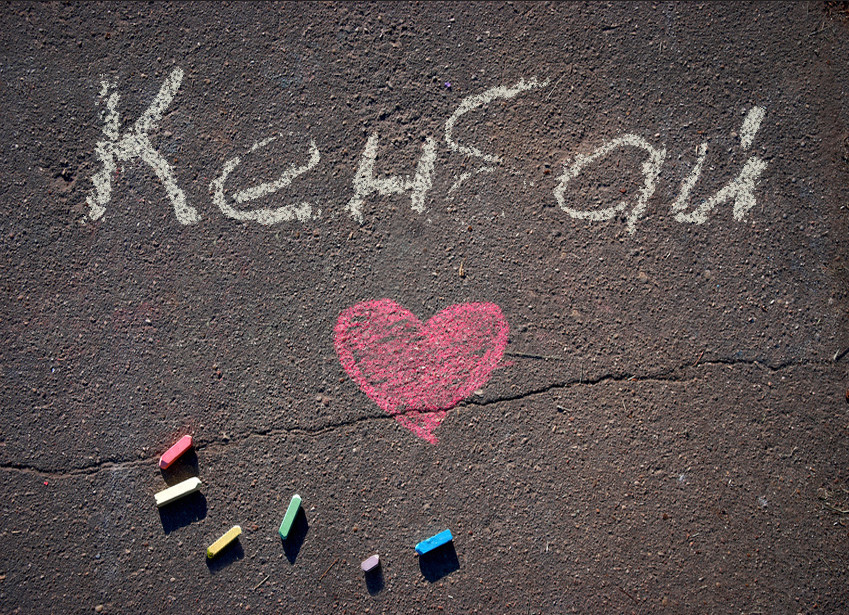 Кенбай